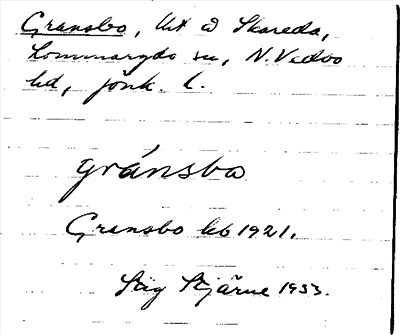 Gransbo, Ut å Skareda,
Lommaryds sn, N. Vedbo
hd, jönk. l.
gránsbo
Gransbo kb 1921.
Stig Stjärne 1933.